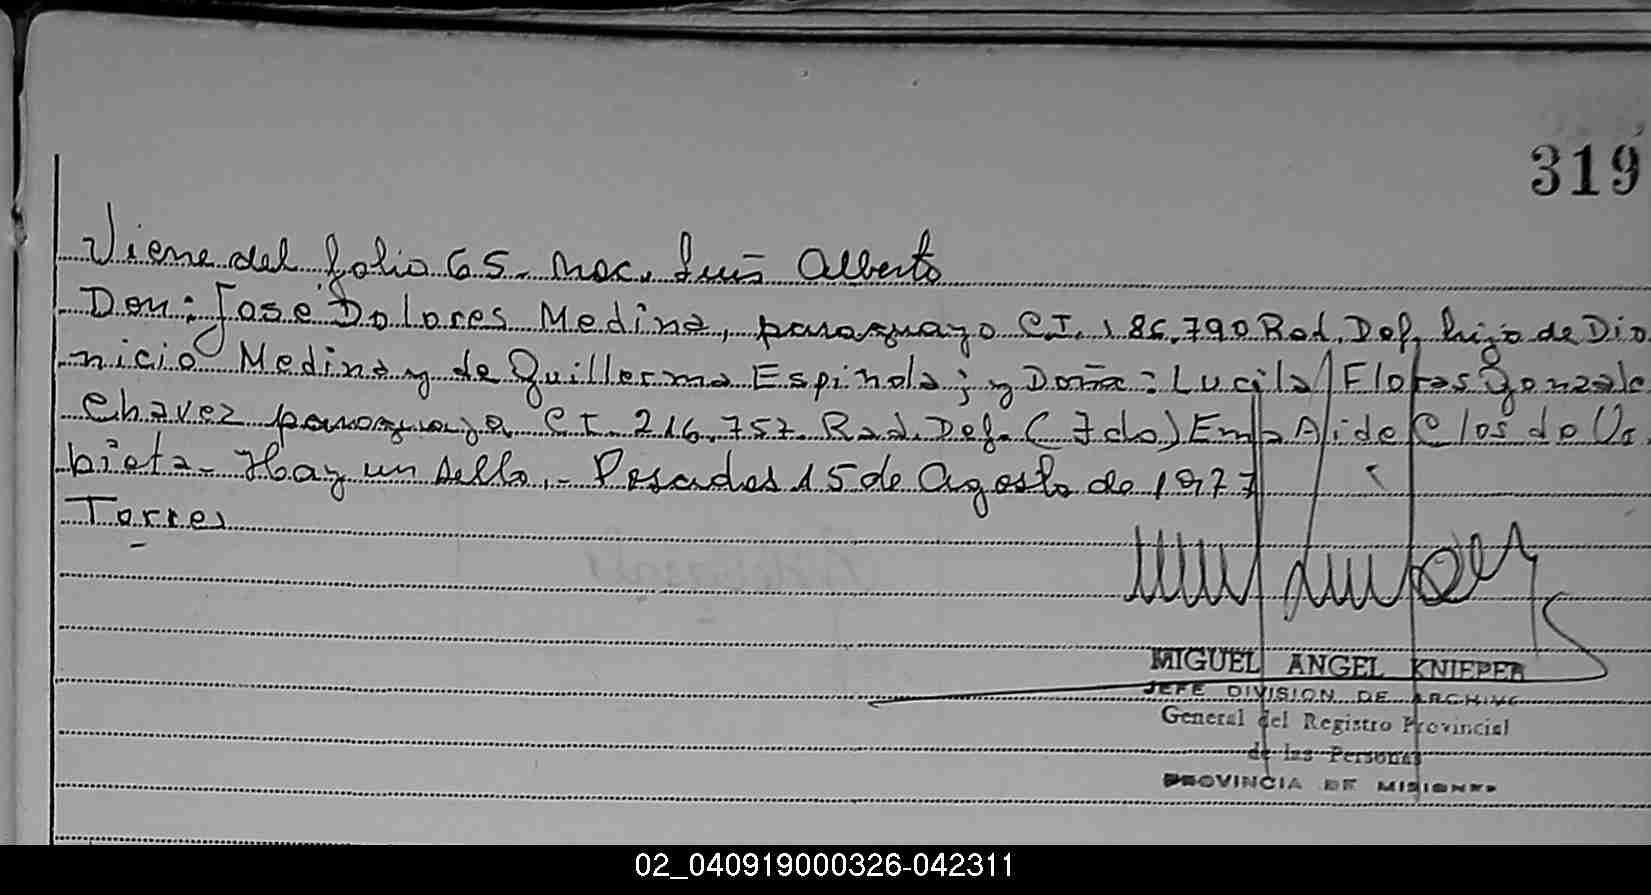 319
Viene del folio 65- Nac. Luis Alberto
Don: Jose Dolores Medina, paraguayo C.I. 186.790 Rad. Def. hijo de Dio
nicio Medina y de Guillerma Espinola; y Doña: Lucila Flores Gonzale
Chavez paraguaya C.I. 216.757 Rad. Def. (Fdo) Ema Aide Clos de Ur
bieta- Hay un sello,- Posadas 15 de Agosto de 1977
Torres
MIGUEL ANGEL KNIEPER
JEFE DIVISION DE ARCHIVO
General del Registro Provincial
de las Personas
PROVINCIA DE MISIONES
02_040919000326-042311